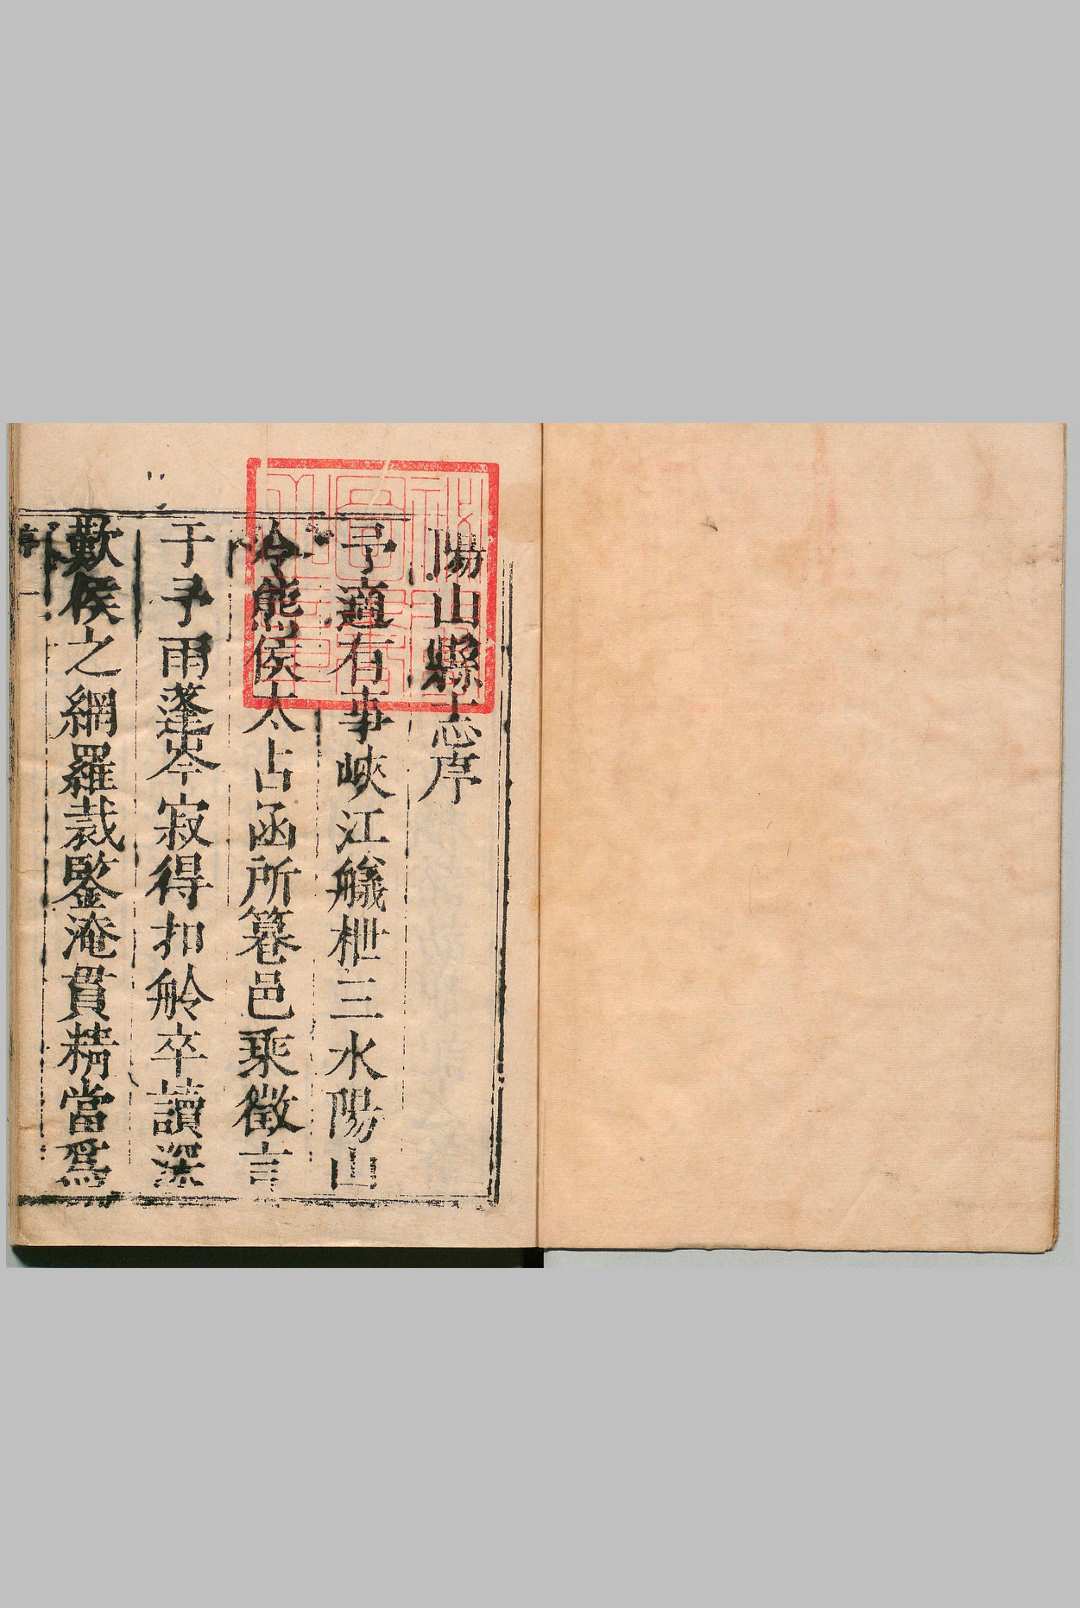 陽山縣志序
予適有事峽江艤枻三水陽山
泠熊侯太占函所篹邑乘徵言
于予雨蓬岑寂得扣舲卒讀深
歎侯之網羅裁鑒淹貫精當爲
序一